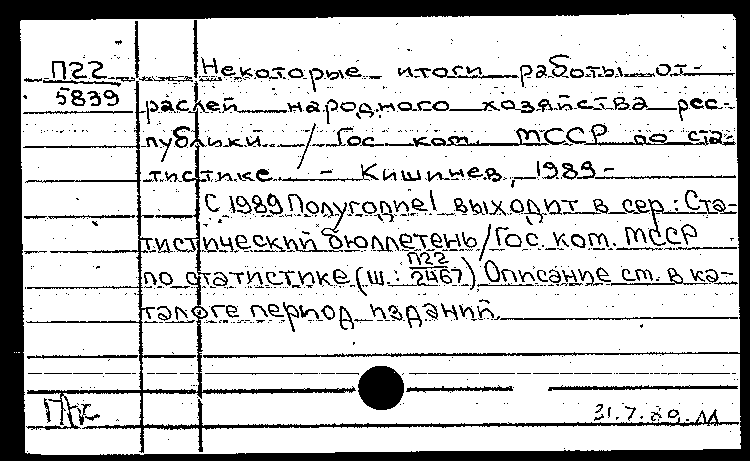 П22
5839
Некоторые итоги работы от-
раслей народного хозяйства рес-
публики / Гос. ком. МССР по ста-
тистике - Кишинев, 1989-
С 1989 Полугодие 1 выходит в сер.: Ста-
тистический бюллетень / Гос. ком. МССР
по статистике (ш.: П22/2467) Описание ст. в ка-
талоге период. изданий.
31.7.89.